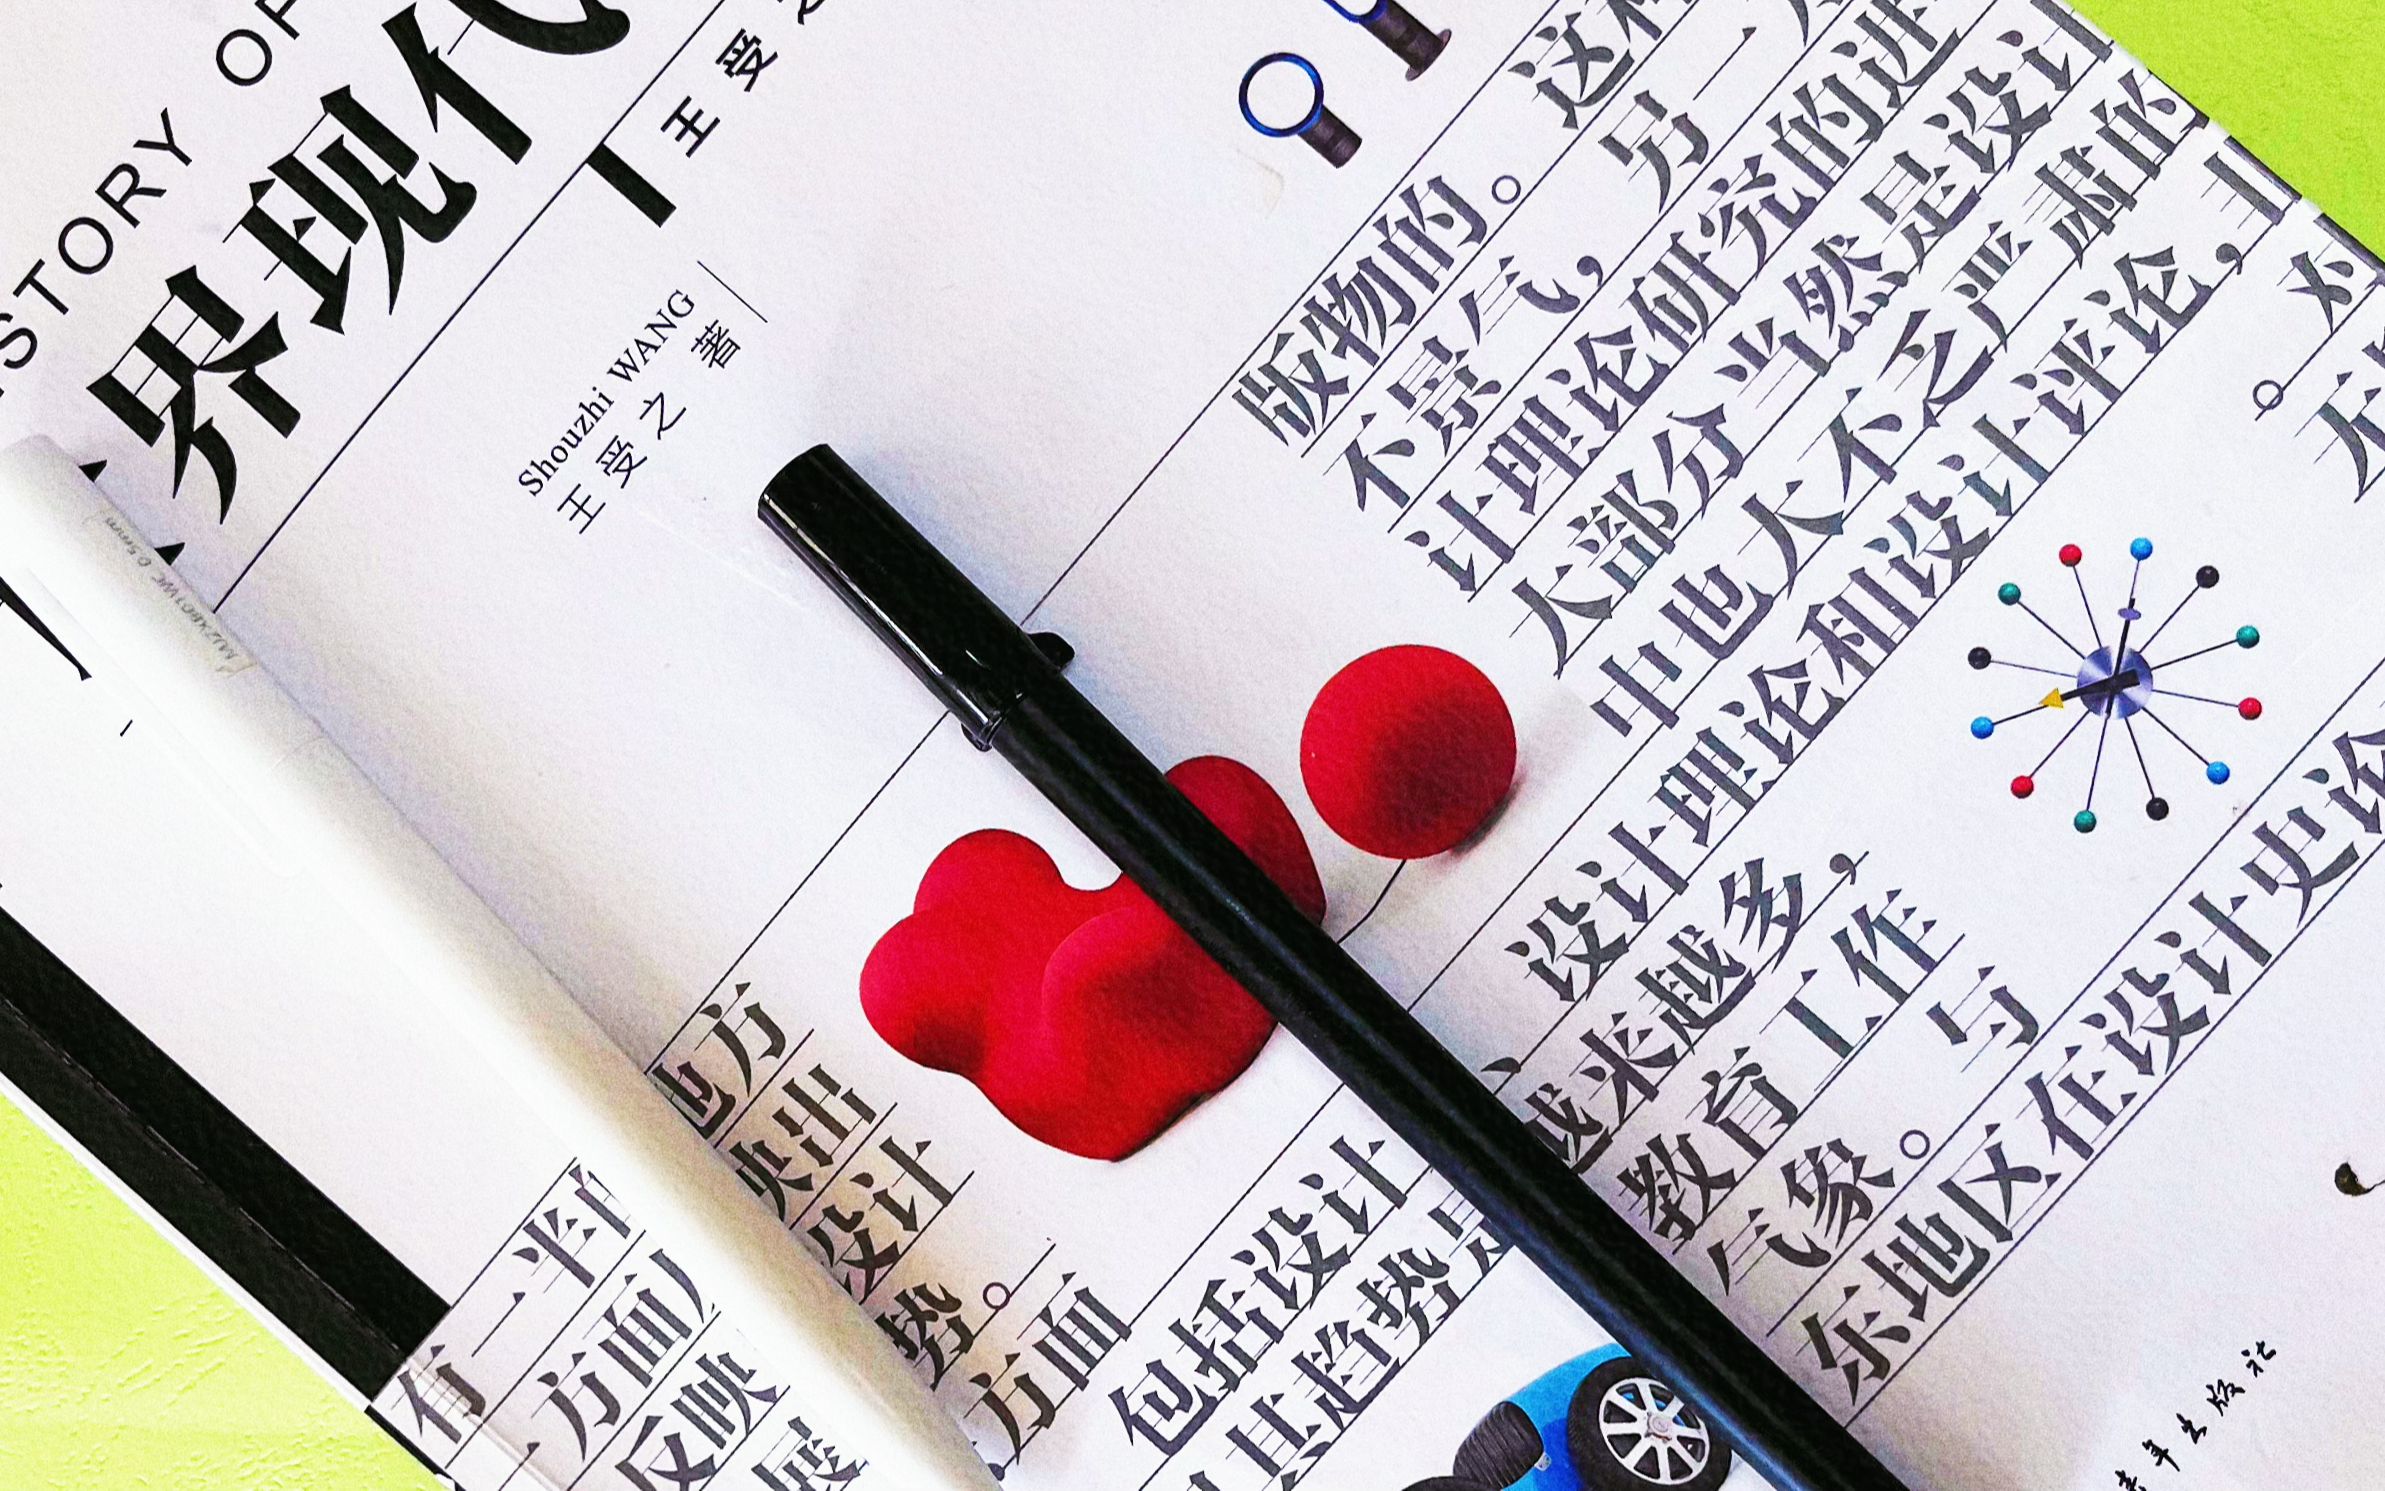 STORY OF
界现代
王受之
Shouzhi WANG
王受之 著
版物的。这种
不景气，另一
计理论研究的进
大部分当然是设计
中也大不乏严肃的
设计理论和设计评论，
对
。
设计理论和设计评论，
越来越多，
教育工作
气象。与
东地区在设计史论
地方
映出
设计
势。
方面
包括设计
其趋势是
有一半
方面
反映
展
MUZXBDIWE 0.5mm
青年出版社